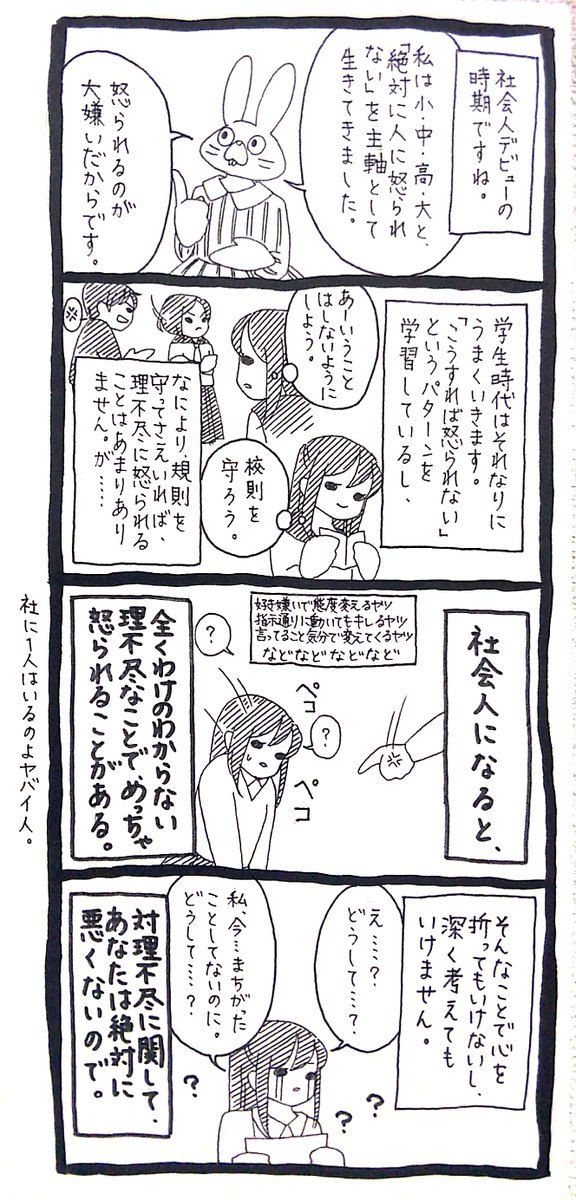 社会人デビューの
時期ですね。
私は小・中・高・大と、
「絶対に人に怒られ
ない」を主軸として
生きてきました。
怒られるのが
大嫌いだからです。
学生時代はそれなりに
うまくいきます。
「こうすれば怒られない」
というパターンを
学習しているし、
あーいうこと
はしないように
しよう。
校則を
守ろう。
なにより、規則を
守ってさえいれば、
理不尽に怒られる
ことはあまりあり
ません。が……
社会人になると、
好き嫌いで態度変えるヤツ
指示通りに動いてもキレるヤツ
言ってること気分で変えてくるヤツ
などなどなどなど
？
？
ペコ
ペコ
全くわけのわからない
理不尽なことで、めっちゃ
怒られることがある。
社に1人はいるのよヤバイ人。
そんなことで心を
折ってもいけないし、
深く考えても
いけません。
え……？
どうして…？
私、今…まちがった
ことしてないのに。
どうして…？
？
？
？
対理不尽に関して、
あなたは絶対に
悪くないので。